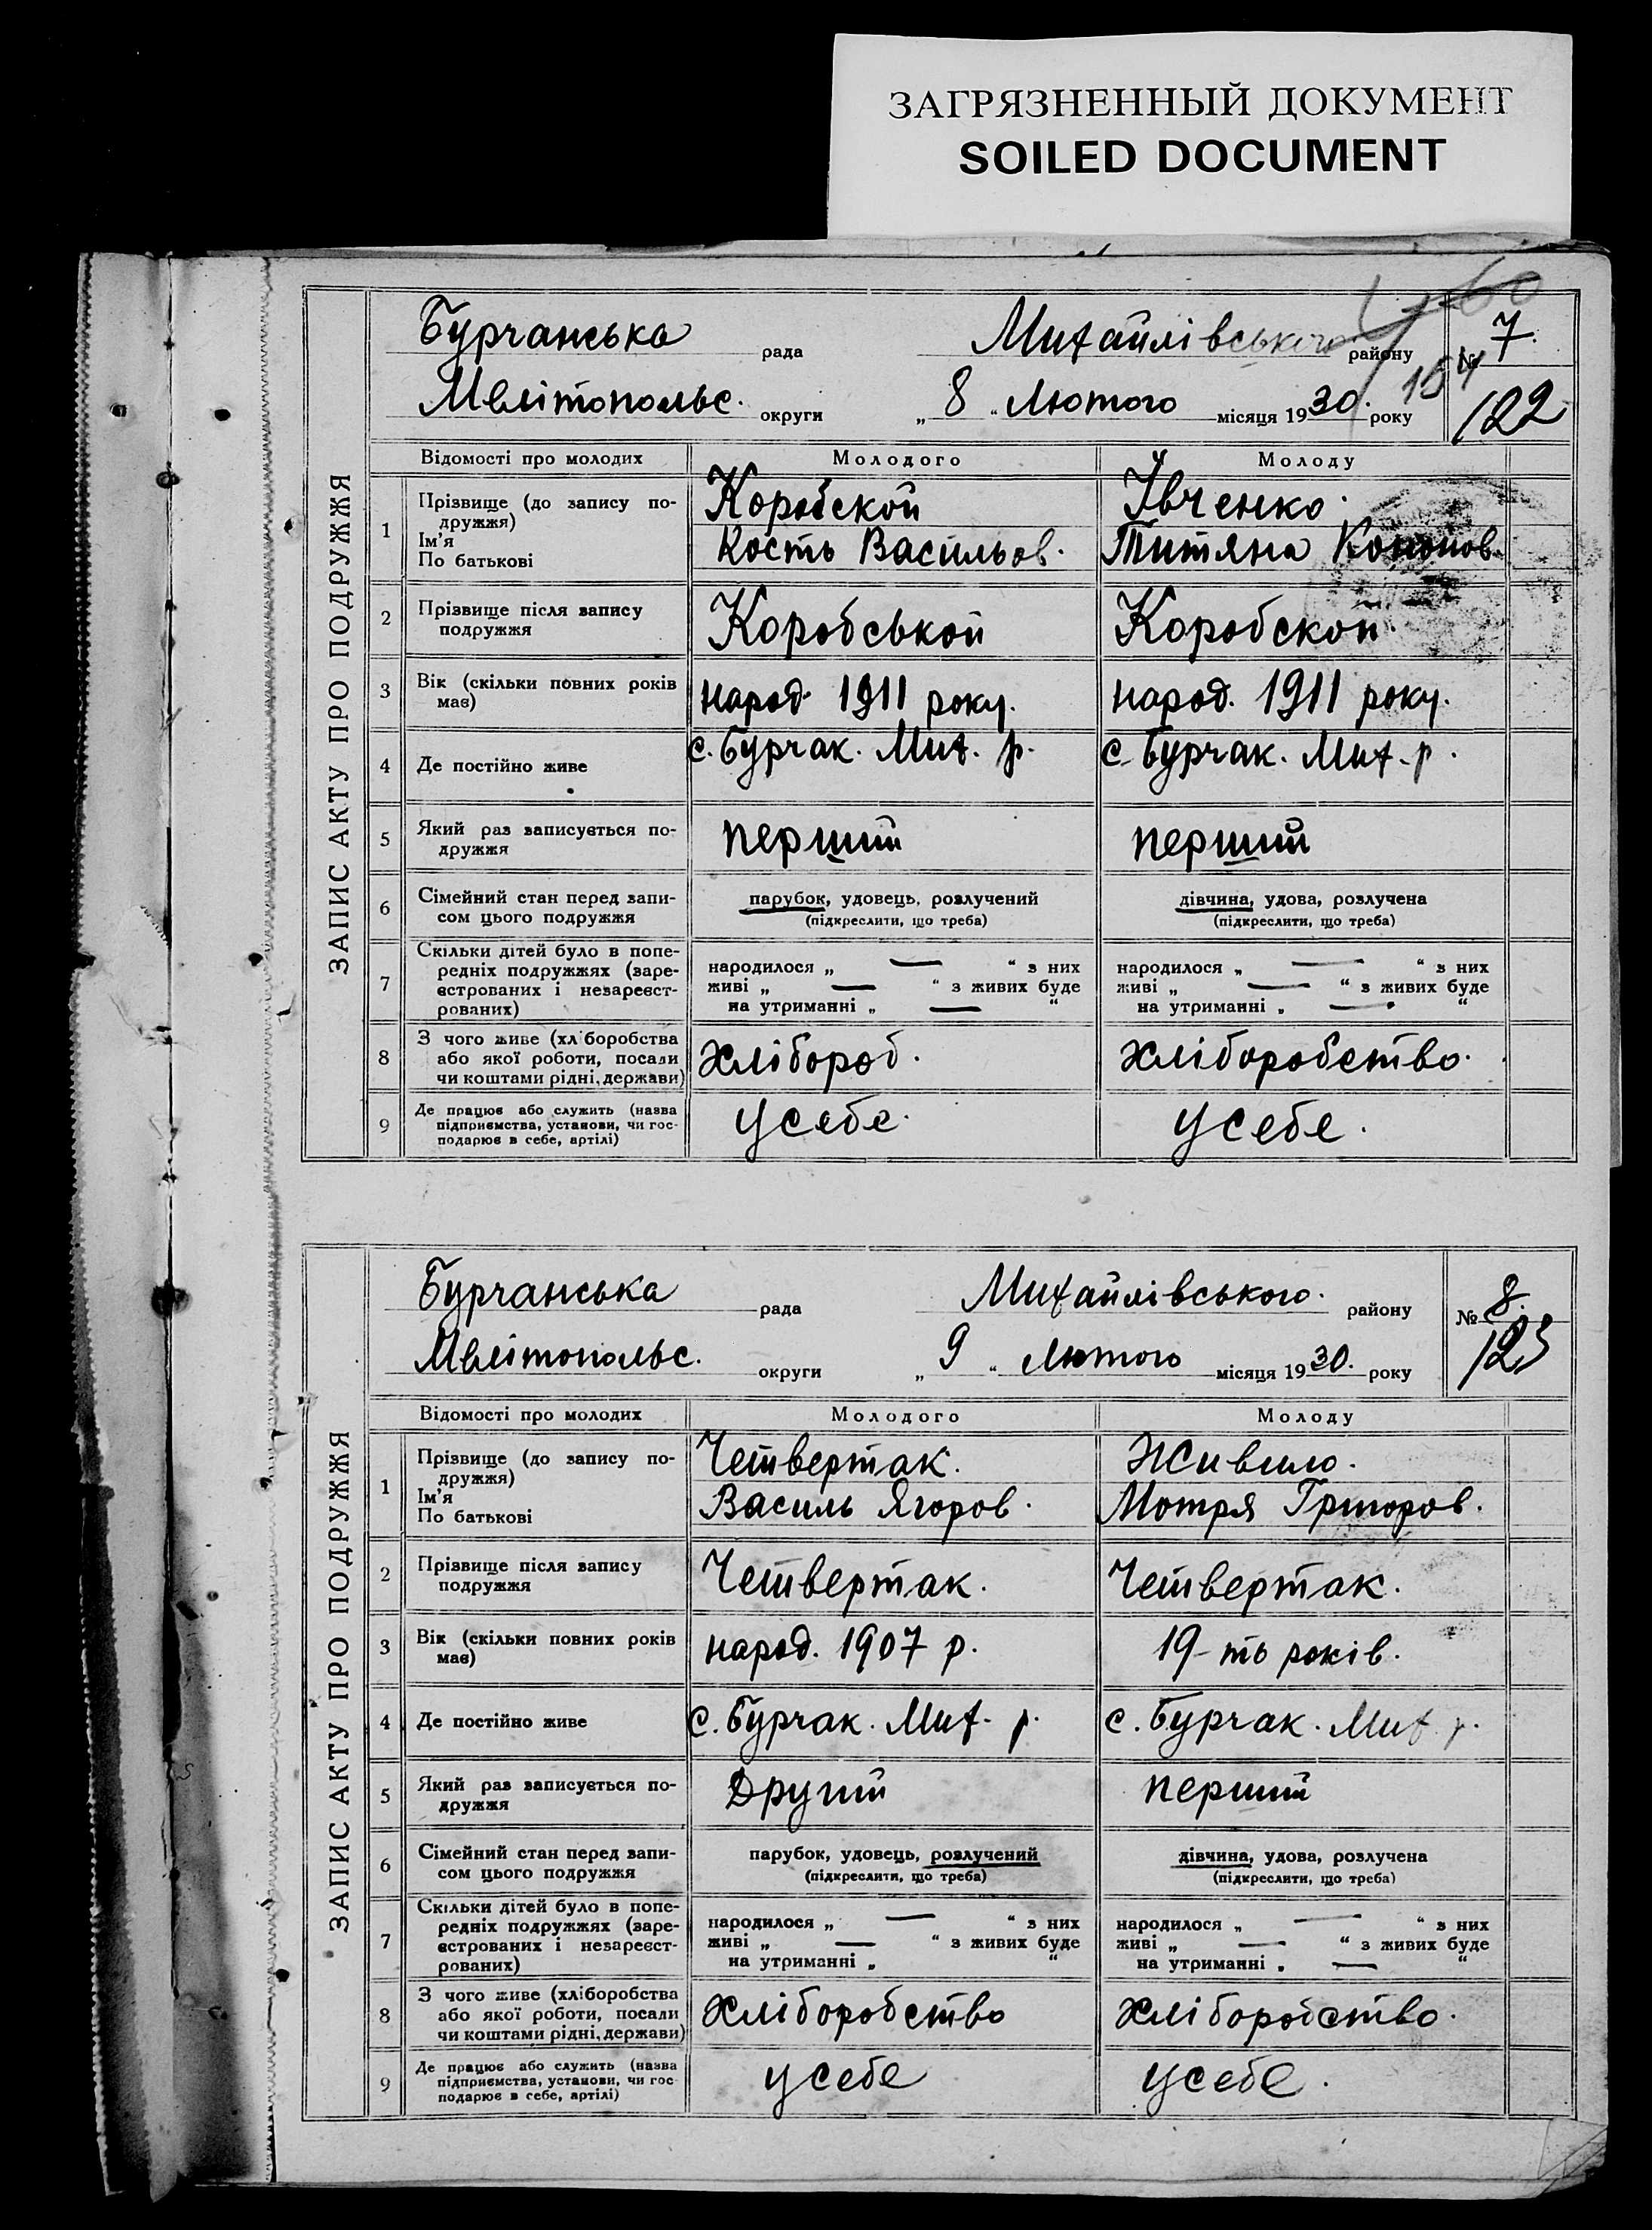 ЗАГРЯЗНЕННЫЙ ДОКУМЕНТ
SOILED DOCUMENT
60
ЗАПИС АКТУ ПРО ПОДРУЖЖЯ
Бурчанська рада Михайлівського району № 7.
154
Мелітопольс. округи „ 8 “ Лютого місяця 1930. року 122
Відомості про молодих Молодого Молоду
1 Прізвище (до запису по-
дружжя)
Ім'я
По батькові
Коробской Івченко.
Кость Васильов. Титяна Кононов.
2 Прізвище після запису
подружжя
Коробськой Коробской
3 Вік (скільки повних років
має)
народ. 1911 року. народ. 1911 року.
4 Де постійно живе с. Бурчак. Мих. р. с. Бурчак. Мих. р.
5 Який раз записується по-
дружжя
перший перший
6 Сімейний стан перед запи-
сом цього подружжя
парубок, удовець, розлучений дівчина, удова, розлучена
(підкреслити, що треба) (підкреслити, що треба)
7 Скільки дітей було в попе-
редніх подружжях (заре-
єстрованих і незареєст-
рованих)
народилося „ — “ з них народилося „ — “ з них
живі „ — “ з живих буде живі „ — “ з живих буде
на утриманні „ — “ на утриманні „ — “
8 З чого живе (хліборобства
або якої роботи, посади
чи коштами рідні, держави)
хлібороб. хліборобство.
9 Де працює або служить (назва
підприємства, установи, чи гос-
подарює в себе, артілі)
усебе. усебе.
ЗАПИС АКТУ ПРО ПОДРУЖЖЯ
Бурчанська рада Михайлівського. району № 8.
Мелітопольс. округи „ 9 “ Лютого місяця 1930. року 123
Відомості про молодих Молодого Молоду
1 Прізвище (до запису по-
дружжя)
Ім'я
По батькові
Четвертак. Живило.
Василь Ягоров. Мотря Григоров.
2 Прізвище після запису
подружжя
Четвертак. Четвертак.
3 Вік (скільки повних років
має)
народ. 1907 р. 19-ть років.
4 Де постійно живе с. Бурчак. Мих. р. с. Бурчак. Мих. р.
5 Який раз записується по-
дружжя
Другий перший
6 Сімейний стан перед запи-
сом цього подружжя
парубок, удовець, розлучений дівчина, удова, розлучена
(підкреслити, що треба) (підкреслити, що треба)
7 Скільки дітей було в попе-
редніх подружжях (заре-
єстрованих і незареєст-
рованих)
народилося „ — “ з них народилося „ — “ з них
живі „ — “ з живих буде живі „ — “ з живих буде
на утриманні „ “ на утриманні „ — “
8 З чого живе (хліборобства
або якої роботи, посади
чи коштами рідні, держави)
хліборобство хліборобство.
9 Де працює або служить (назва
підприємства, установи, чи гос-
подарює в себе, артілі)
усебе усебе.